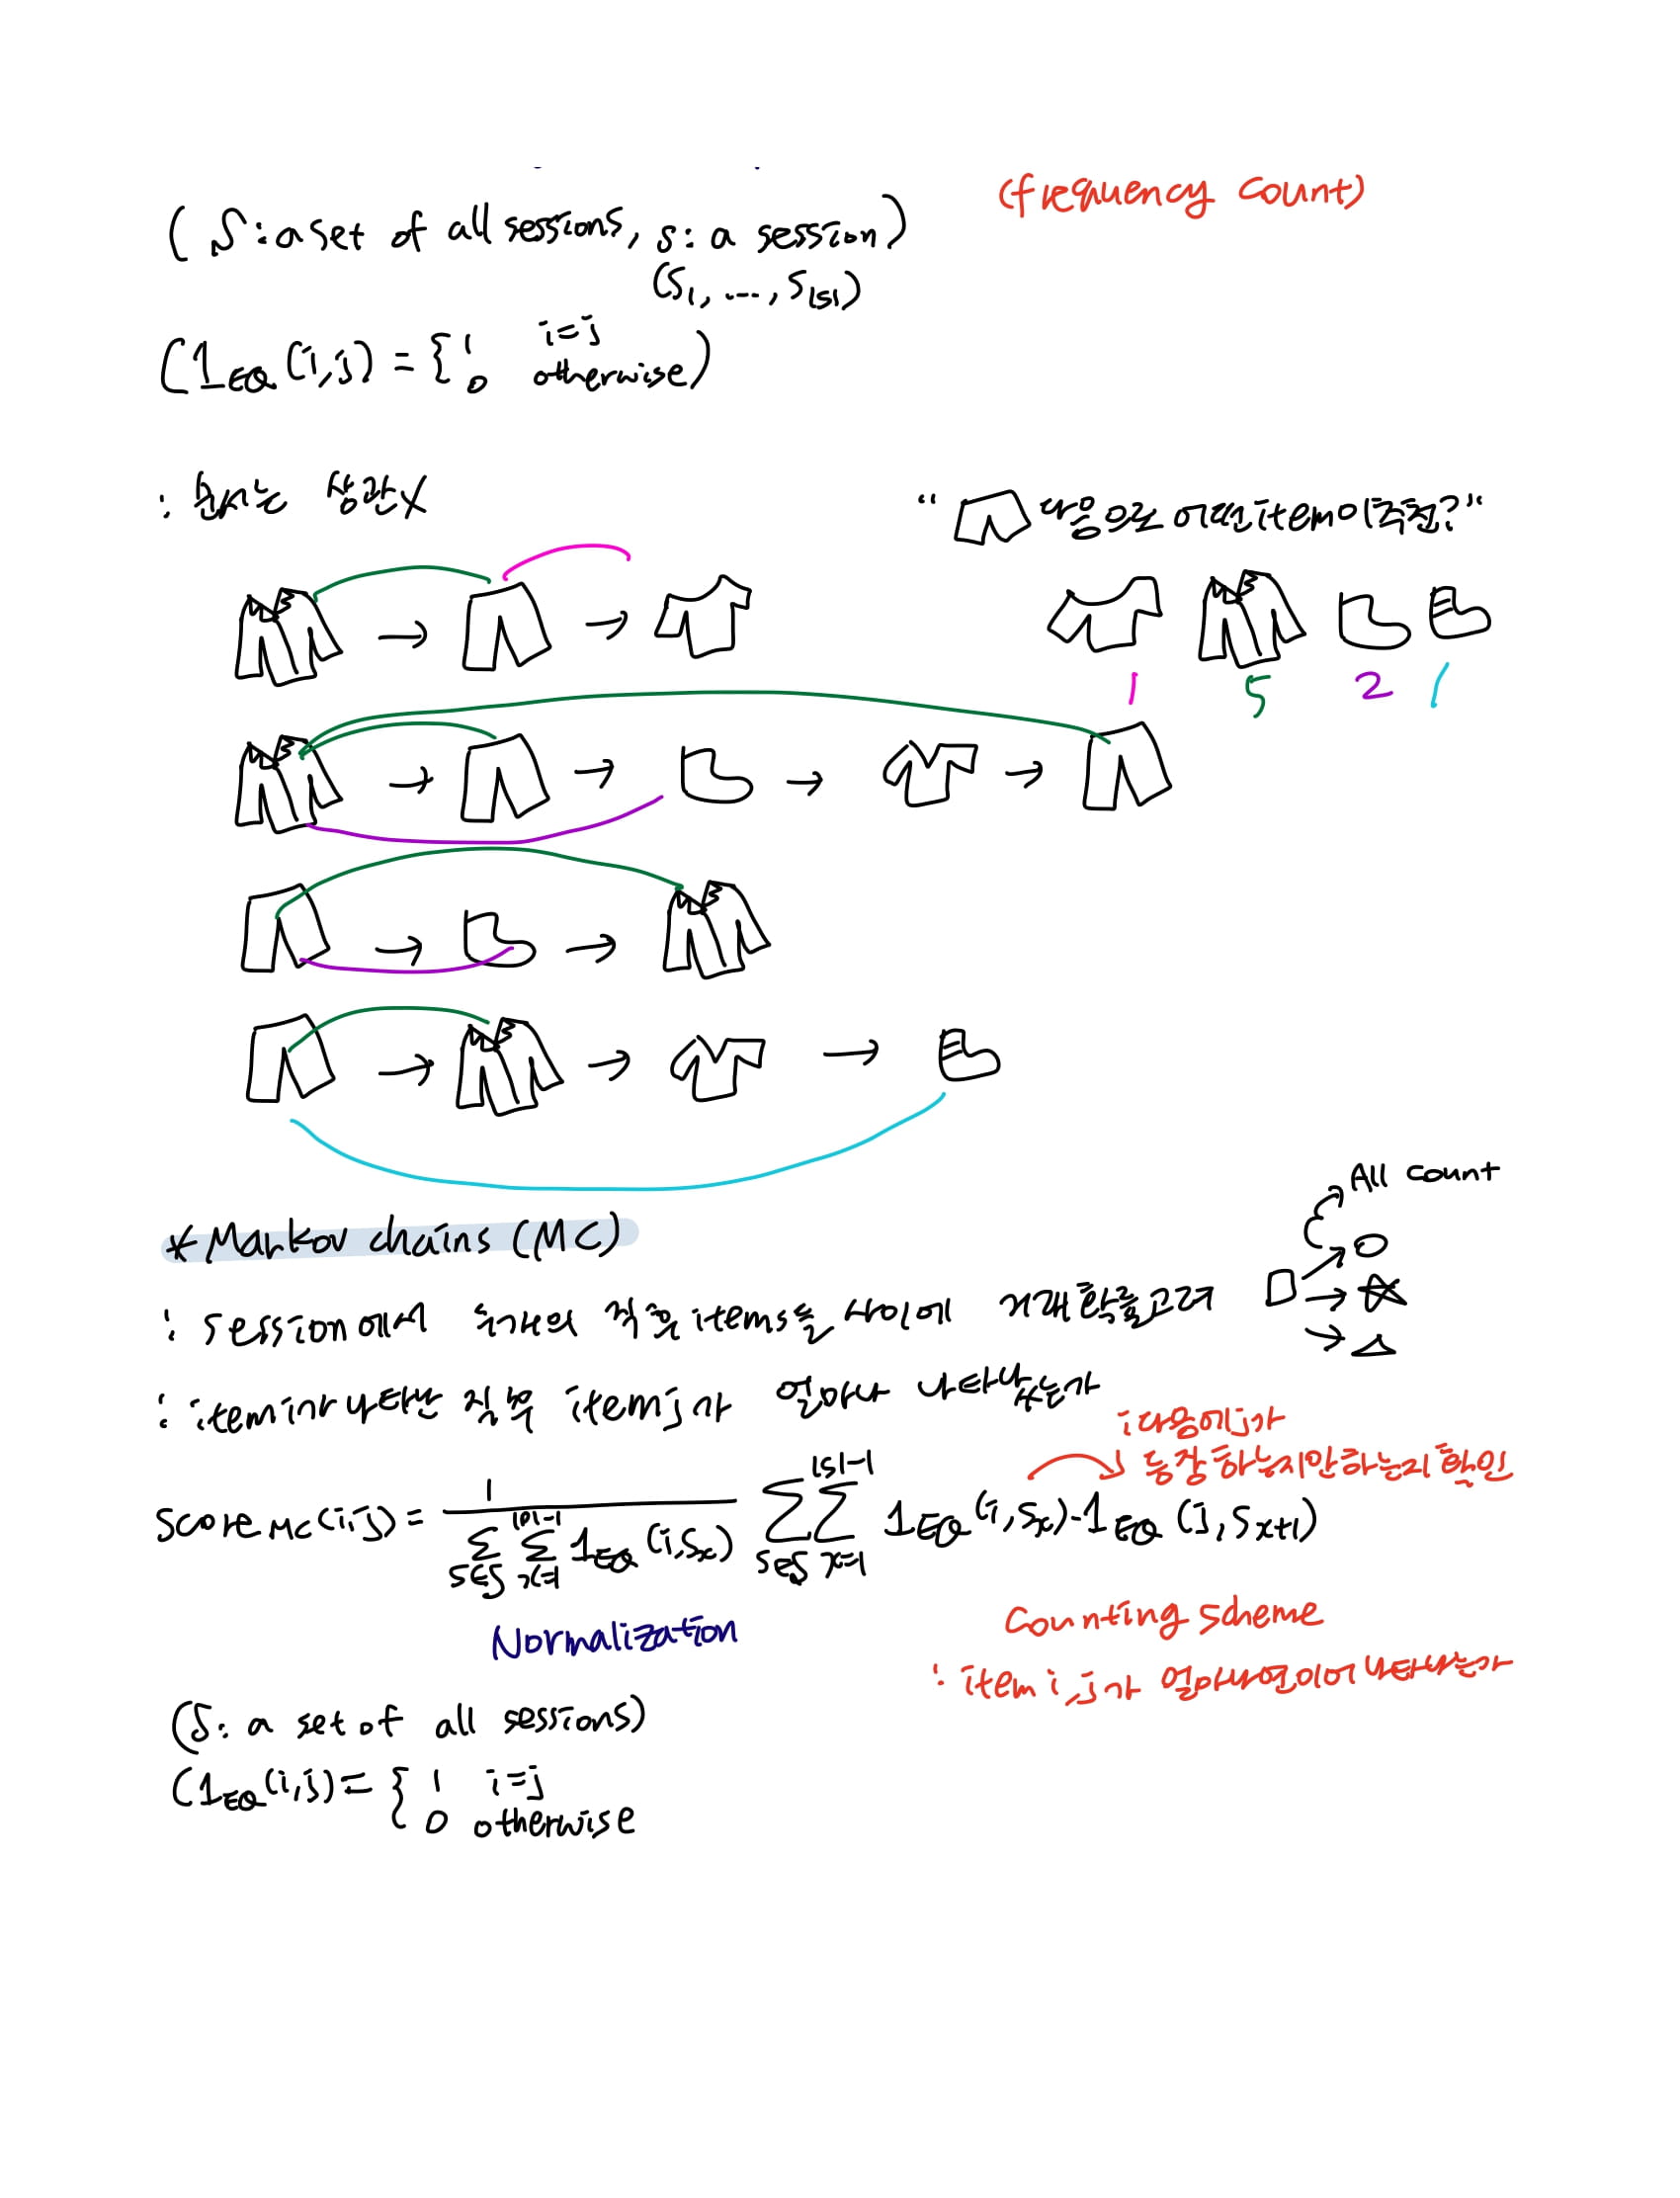 (frequency count)
(S: a set of all sessions, s: a session)
(s₁, ..., s|s|)
(1EQ(i,j) = { 1 i=j
0 otherwise)
: 순서는 상관X
" 다음으로 어떤 item이 추천?"
1 5 2 1
All count
*Markov chains (MC)
: session에서 두개의 직후 items들 사이에 거래확률고려
: item i가 나타난 직후 item j가 얼마나 나타났는가
i 다음에 j가
등장하는지안하는지 확인
score MC(i,j) = 1 / (∑s∈S ∑x=1|p|-1 1EQ(i,sx)) ∑s∈S ∑x=1|s|-1 1EQ(i,sx)·1EQ(j,sx+1)
Normalization
Counting scheme
: item i, j가 얼마나연이어 나타나는가
(S: a set of all sessions)
(1EQ(i,j) = { 1 i=j
0 otherwise